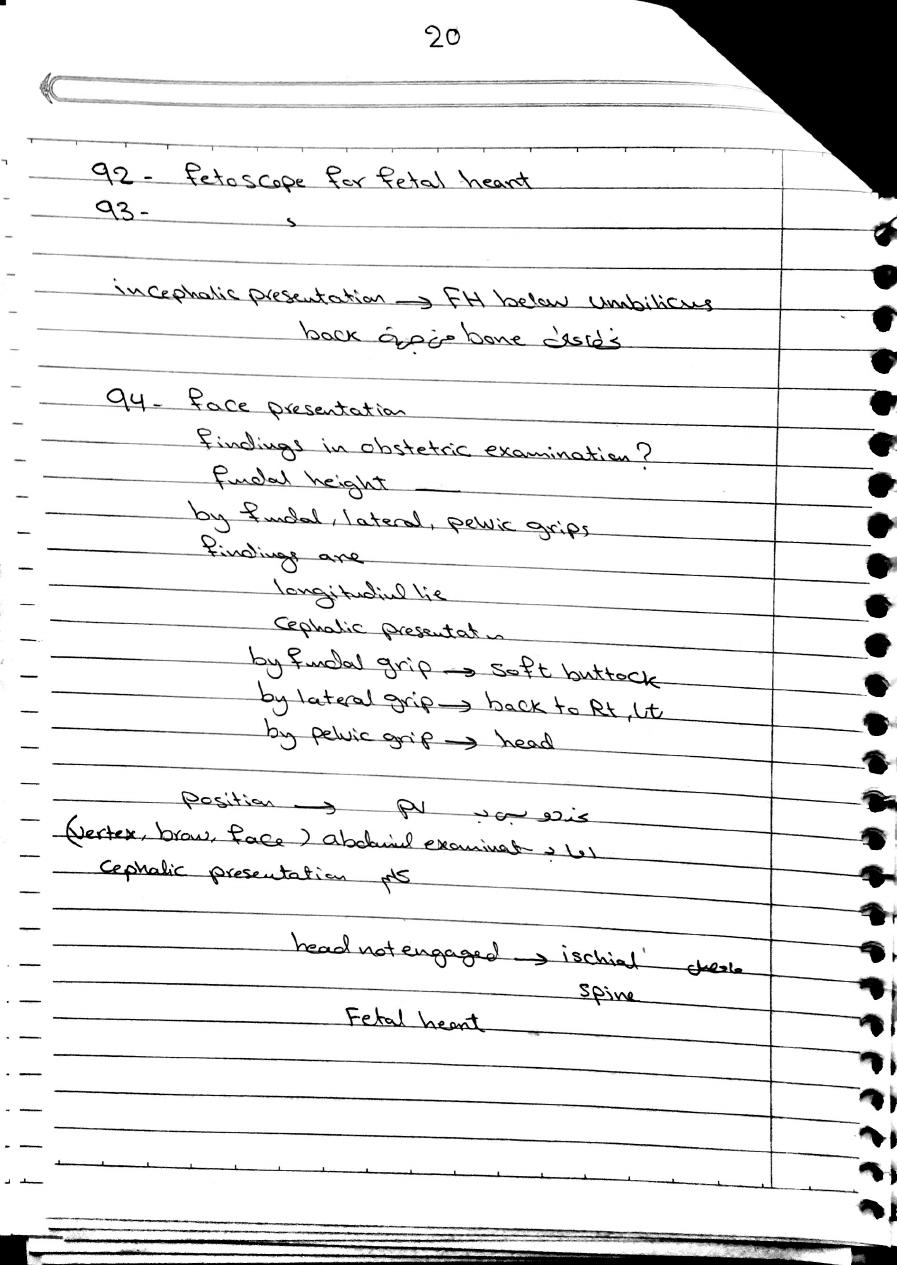 20
92- fetoscope for fetal heart
93-
in cephalic presentation → FH below umbilicus
back من جهة bone
94- face presentation
findings in obstetric examination?
fundal height —
by fundal, lateral, pelvic grips
findings are
longitudinl lie
cephalic presentatn
by fundal grip → soft buttock
by lateral grip → back to Rt, Lt
by pelvic grip → head
position → PV
(vertex, brow, face) abdominl examinat
cephalic presentation كلهم
head not engaged → ischial
spine
Fetal heart